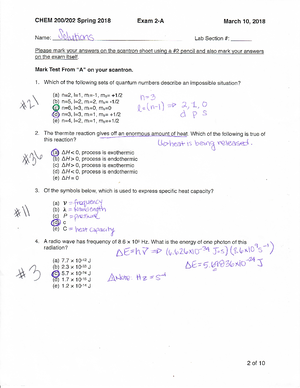 CHEM 200/202 Spring 2018 Exam 2-A March 10, 2018
Name: Solutions Lab Section #:
Please mark your answers on the scantron sheet using a #2 pencil and also mark your answers
on the exam itself.
Mark Test Form "A" on your scantron.
#21
1. Which of the following sets of quantum numbers describe an impossible situation?
(a) n=2, l=1, mₗ=-1, mₛ= +1/2
(b) n=5, l=2, mₗ=2, mₛ= -1/2
n=3
l=(n-1) => 2, 1, 0
d p s
#36
2. The thermite reaction gives off an enormous amount of heat. Which of the following is true of
this reaction?
heat is being released.
(a) ΔH < 0, process is exothermic
(b) ΔH > 0, process is endothermic
(c) ΔH > 0, process is exothermic
(d) ΔH < 0, process is endothermic
(e) ΔH = 0
#11
3. Of the symbols below, which is used to express specific heat capacity?
(a) ν = frequency
(b) λ = wavelength
(c) P = pressure
(d) c
(e) C = heat capacity
#3
4. A radio wave has frequency of 8.6 x 10⁹ Hz. What is the energy of one photon of this
radiation?
ΔE = hν => (6.626x10⁻³⁴ J·s)(8.6x10⁹ s⁻¹)
ΔE = 5.69836x10⁻²⁴ J
Note: Hz = s⁻¹
2 of 10